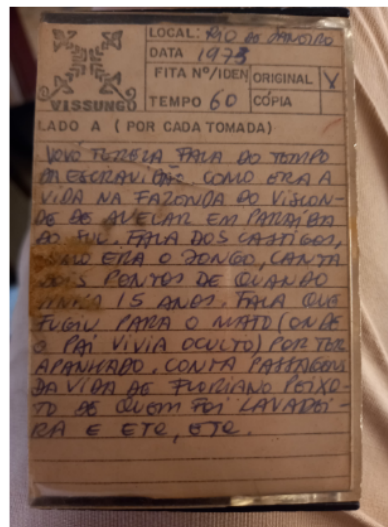 LOCAL: RIO DE JANEIRO
DATA 1973
FITA Nº/IDEN ORIGINAL X
VISSUNGO TEMPO 60 CÓPIA
LADO A (POR CADA TOMADA)
VOVÓ TEREZA FALA DO TEMPO
DA ESCRAVIDÃO COMO ERA A
VIDA NA FAZENDA DO VISCON-
DE DE AVELAR EM PARAÍBA
DO SUL. FALA DOS CASTIGOS,
COMO ERA O JONGO, CANTA
DOIS PONTOS DE QUANDO
TINHA 15 ANOS. FALA QUE
FUGIU PARA O MATO (ONDE
O PAI VIVIA OCULTO) POR TER
APANHADO. CONTA PASSAGENS
DA VIDA DE FLORIANO PEIXO-
TO DE QUEM FOI LAVADEI-
RA E ETC, ETC.